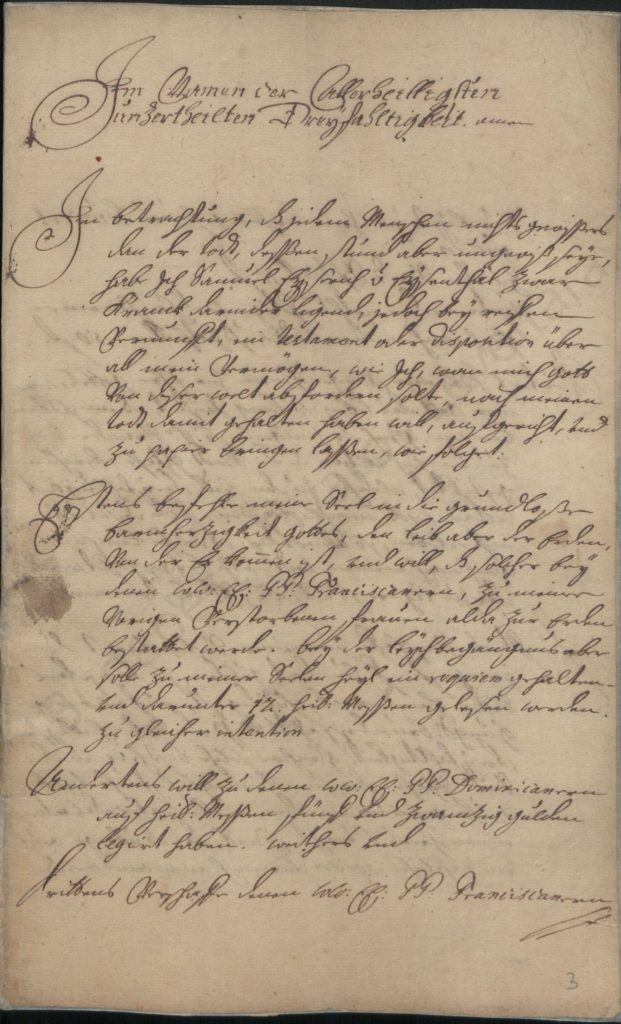 Im Namen der Allerheilligsten
unzertheilten Dreyfaltigkeit. amen
In betrachtung, dz jedem Menschen nichts gewissers
dan der todt, dessen stund aber ungewiß seye,
habe Ich Samuel v Eysenthal zwar
Kranck darnider ligend, jedoch bey rechten
Vernunfft, ein testament oder disposition über
all mein Vermögen, wie Ich, wan mich gott
von diser welt abfordern solte, nach meinen
todt damit gehalten haben will, auffgericht, und
zu papier bringen lassen, wie folget:
Erstens befehle meine Seel in die grundlose
barmherzigkeit gottes, den leib aber der Erden,
von der Er kommen ist, und will, dz solcher bey
denen PP: Franciscanern, zu meiner
vorigen verstorbenen frauen alda zur Erden
bestattet werde. bey der leychbegängnus aber
solle zu meiner Seelen heyl ein requiem gehalten
und darunter 12. heil: Messen gelesen werden.
zu gleicher intention
Andertens will zu denen PP: Dominicanern
auff heil: Messen fünff und zwantzig gulden
legirt haben. weithers und
Drittens verschaffe denen PP Franciscanern
3